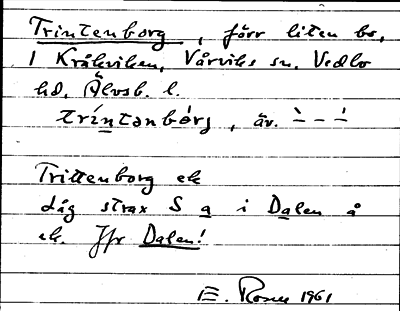 Trintenborg, förr liten bo,
i Kråkviken, Vårviks sn. Vedbo
hd, Älvsb. l.
tríntənbórg, äv. `– – ´
Trittenborg ek
Låg strax S a i Dalen å
ek. Jfr Dalen!
E. Rosen 1961